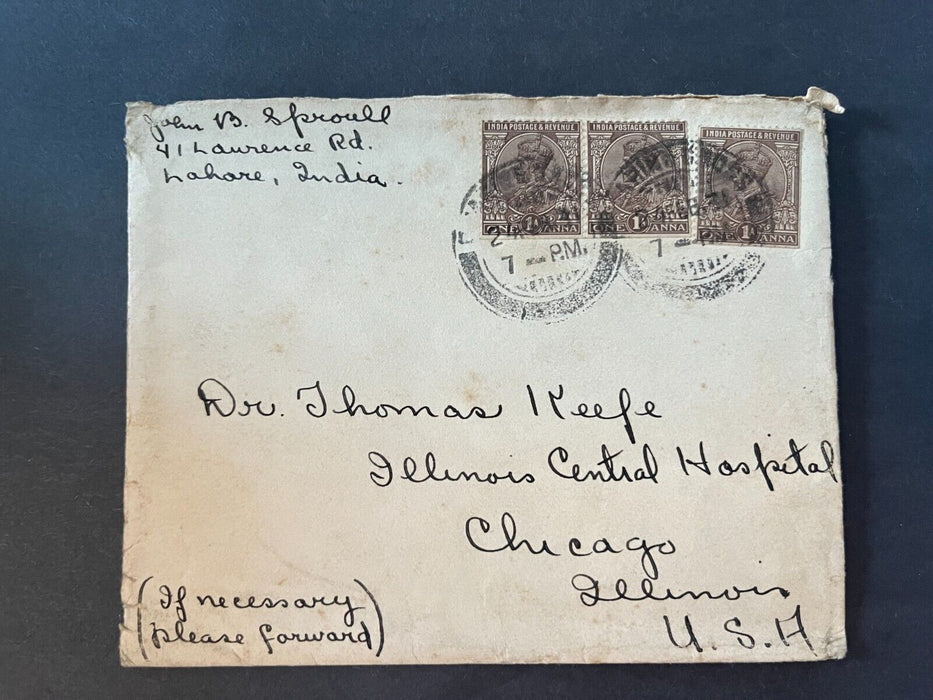 John B. Sproull
41 Lawrence Rd.
Lahore, India.
INDIA POSTAGE & REVENUE
ONE 1A ANNA
INDIA POSTAGE & REVENUE
ONE 1A ANNA
INDIA POSTAGE & REVENUE
ONE 1A ANNA
7 - P.M.
7 -
Dr. Thomas Keefe
Illinois Central Hospital
Chicago
Illinois
U.S.A
(If necessary
please forward)